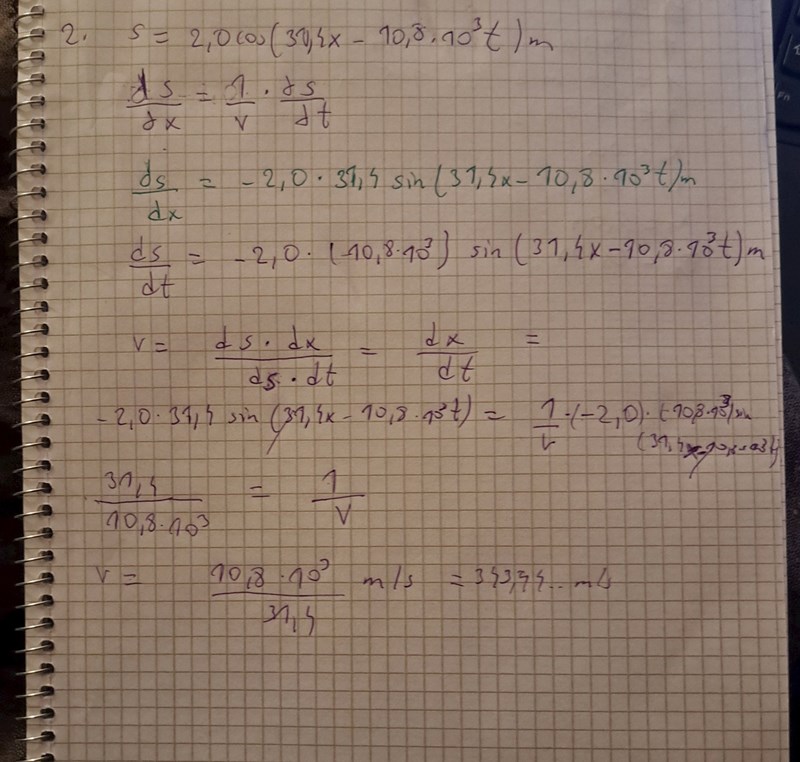 2. s = 2,0 cos(31,4x − 10,8·10³t) m
ds/dx = 1/v · ds/dt
ds/dx = −2,0 · 31,4 sin(31,4x − 10,8·10³t) m
ds/dt = −2,0 · (−10,8·10³) sin(31,4x − 10,8·10³t) m
v = ds·dx/ds·dt = dx/dt =
−2,0·31,4 sin(31,4x − 10,8·10³t) = 1/v ·(−2,0)· (−10,8·10³) sin
31,4/10,8·10³ = 1/v
v = 10,8·10³/31,4 m/s = 343,94.. m/s